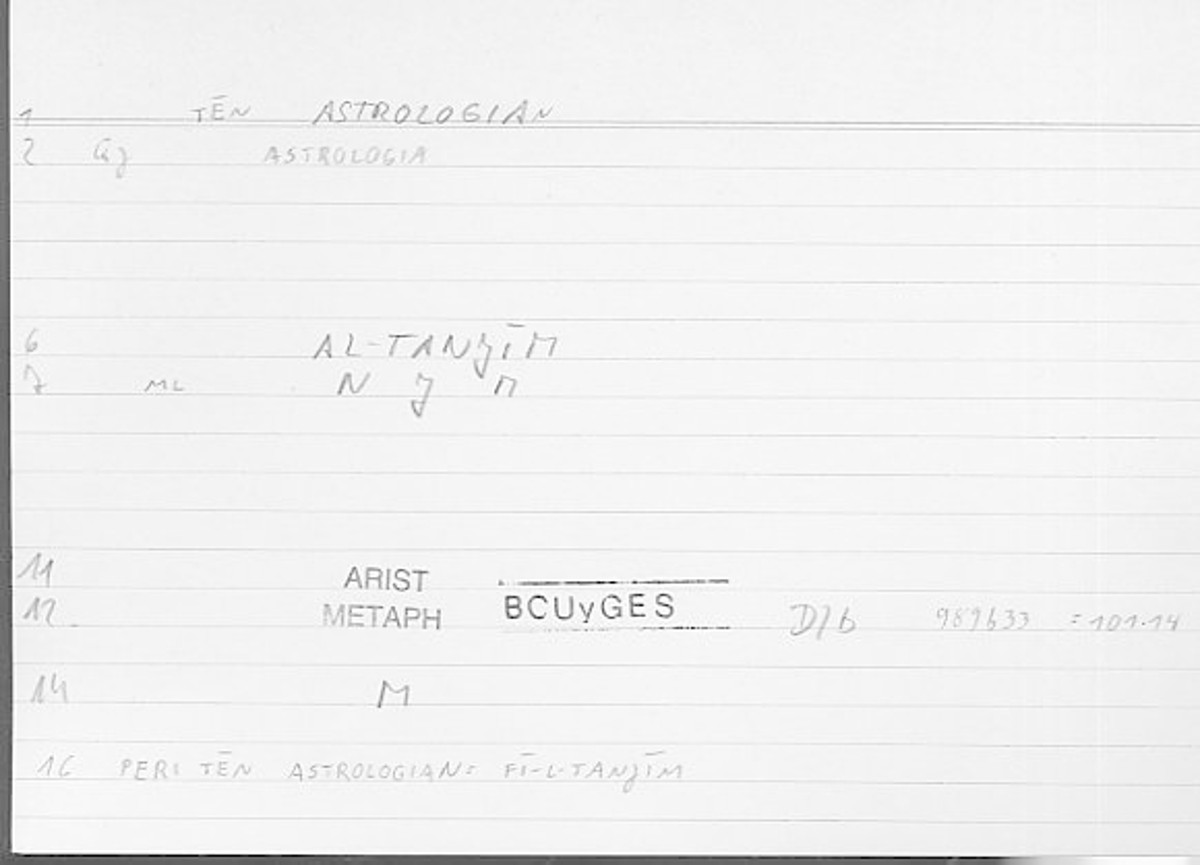 1 TĒN ASTROLOGIAN
2 Gj ASTROLOGIA
6 AL-TANǧĪM
7 ML N ǧ M
11 ARIST
12 METAPH BCUyGES D/b 989b33 =101.14
14 M
16 PERI TĒN ASTROLOGIAN= FĪ-L-TANǧĪM